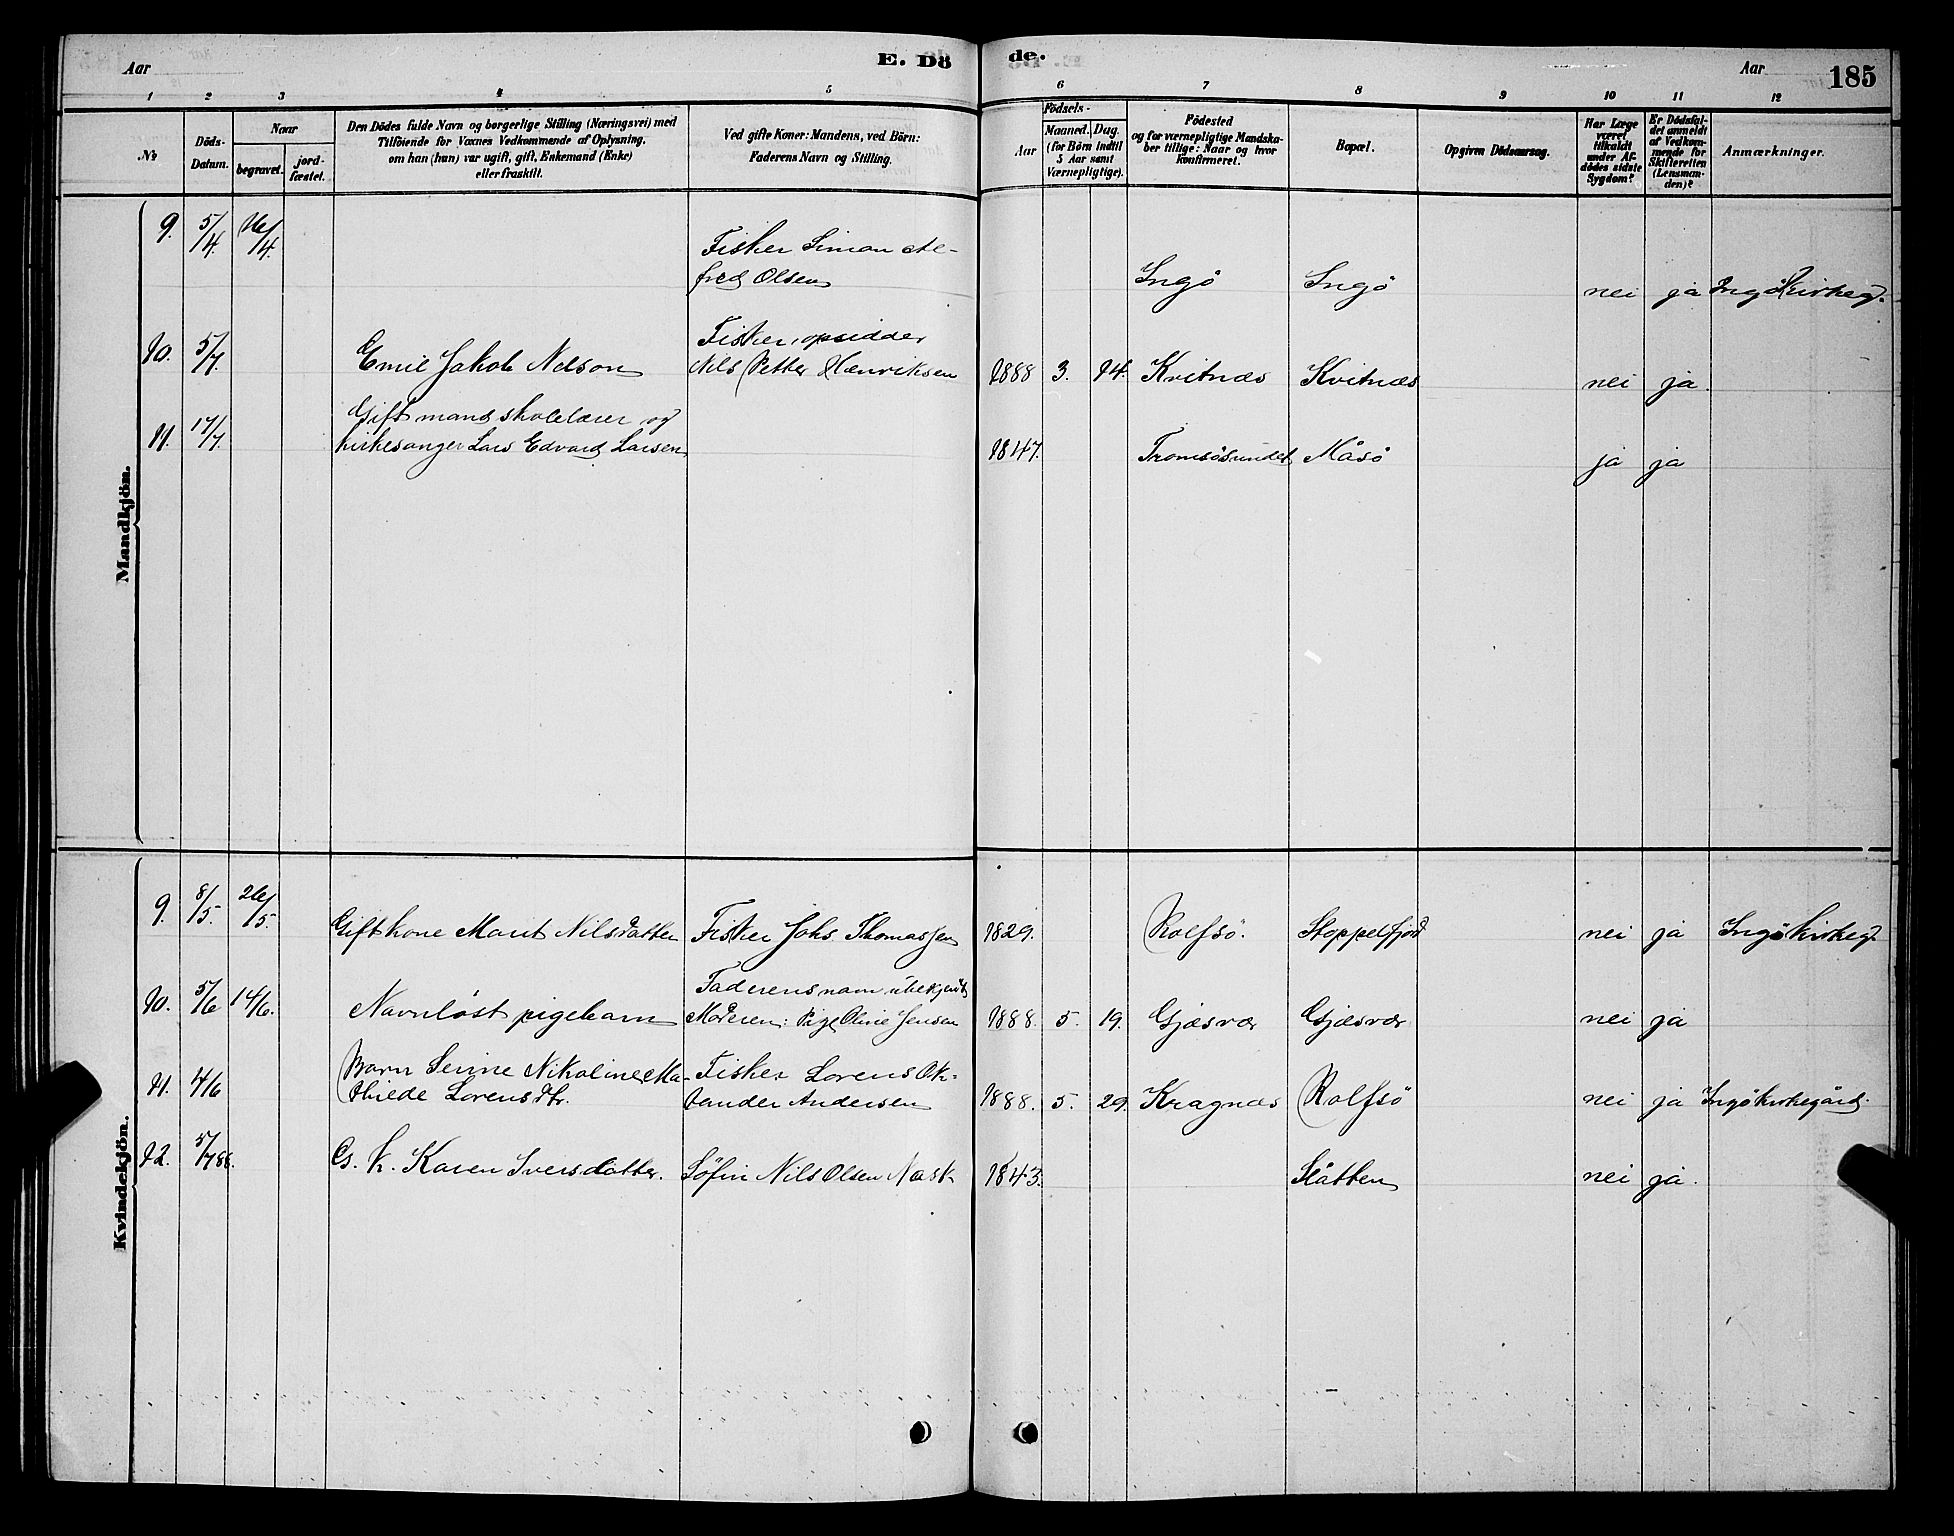 Aar
E. Dö
de.
Aar
185
1 2 3 4 5 6 7 8 9 10 11 12
№
Döds-
Datum.
Naar
begravet.
jord-
fæstet.
Den Dödes fulde Navn og borgerlige Stilling (Næringsvei) med
Tilföiende for Voxnes Vedkommende af Oplysning,
om han (hun) var ugift, gift, Enkemand (Enke)
eller fraskilt.
Ved gifte Koner: Mandens, ved Börn:
Faderens Navn og Stilling.
Födsels-
Aar
Maaned.
Dag.
(for Börn indtil
5 Aar samt
Værnepligtige).
Födested
og for værnepligtige Mandska-
ber tillige: Naar og hvor
konfirmeret.
Bopæl.
Opgiven Dödsaarsag.
Har Læge
været
tilkaldt
under Af-
dödes sidste
Sygdom?
Er Dödsfal-
det anmeldt
af Vedkom-
mende for
Skifteretten
(Lensman-
den)?
Anmærkninger.
Mandkjön.
9. 5/4. 16/4. Fisker Simon Al-
fred Olsen Ingö Ingö nei ja Ingö Kirkeg.
Fisker, opsidder
10. 5/7. Emil Jakob Nelson Nils Petter Henriksen 1888 3. 14. Kvitnæs Kvitnæs nei ja.
Gift mand skolelærer og
11. 17/7. kirkesanger Lars Edvard Larsen 1847. Tromsösundet Måsö ja ja
Kvindekjön.
9. 8/5. 26/5. Gift kone Marit Nilsdatter Fisker Johs. Thomassen 1829. Rolfsö. Stoppelfjord nei ja Ingö kirkeg.
Faderens navn ubekjendt
10. 5/6 14/6. Navnlöst pigebarn Moderen: Pige Oline Jensen 1888. 5. 19. Gjæsvær Gjæsvær nei ja
Barn Serine Nikoline Ma- Fisker Lorens Ok-
11. 4/6 thilde Lorensdtr. tander Andersen 1888. 5. 29. Kragnæs Rolfsö nei ja Ingö kirkegård.
12. 5/7 88. G. k. Karen Iversdatter. Söfin Nils Olsen Næsk 1843. Slåtten nei ja.